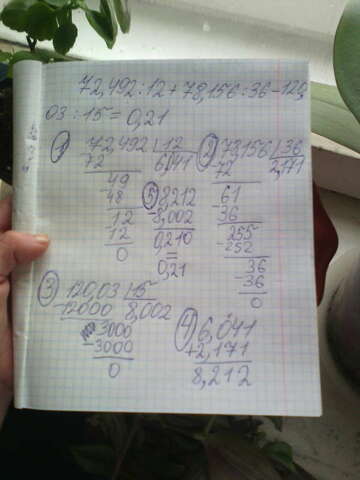 72,492:12+78,156:36-120,
03:15=0,21
① 72,492 | 12
72 6,041
49
48
12
12
0
② 78,156 | 36
72 2,171
61
36
255
252
36
36
0
⑤ 8,212
-8,002
0,210
=
0,21
③ 120,03 | 15
12000 8,002
3000
3000
0
④ 6,041
+2,171
8,212